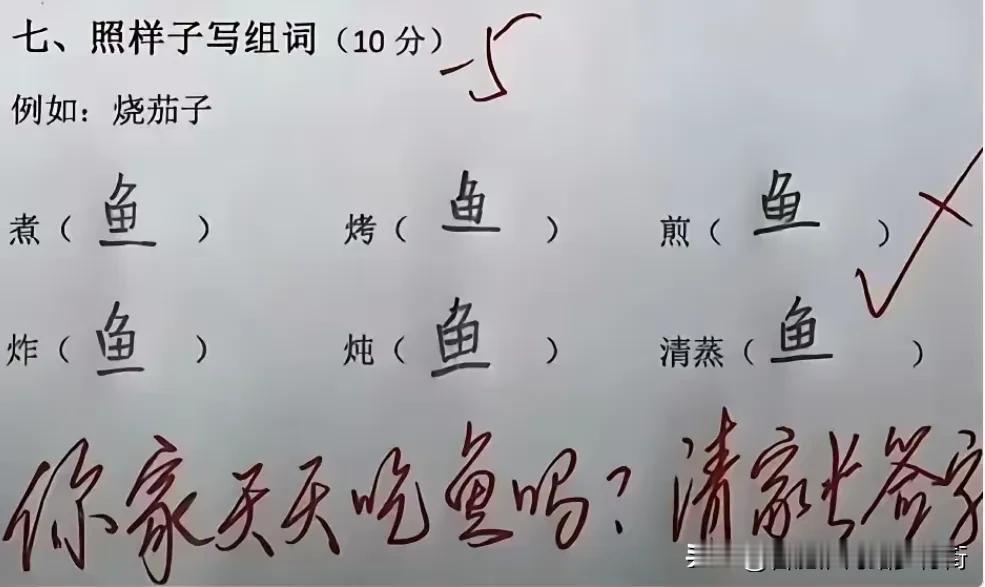 七、照样子写组词（10分） -5
例如：烧茄子
煮（鱼）　烤（鱼）　煎（鱼）
炸（鱼）　炖（鱼）　清蒸（鱼）
你家天天吃鱼吗？请家长签字